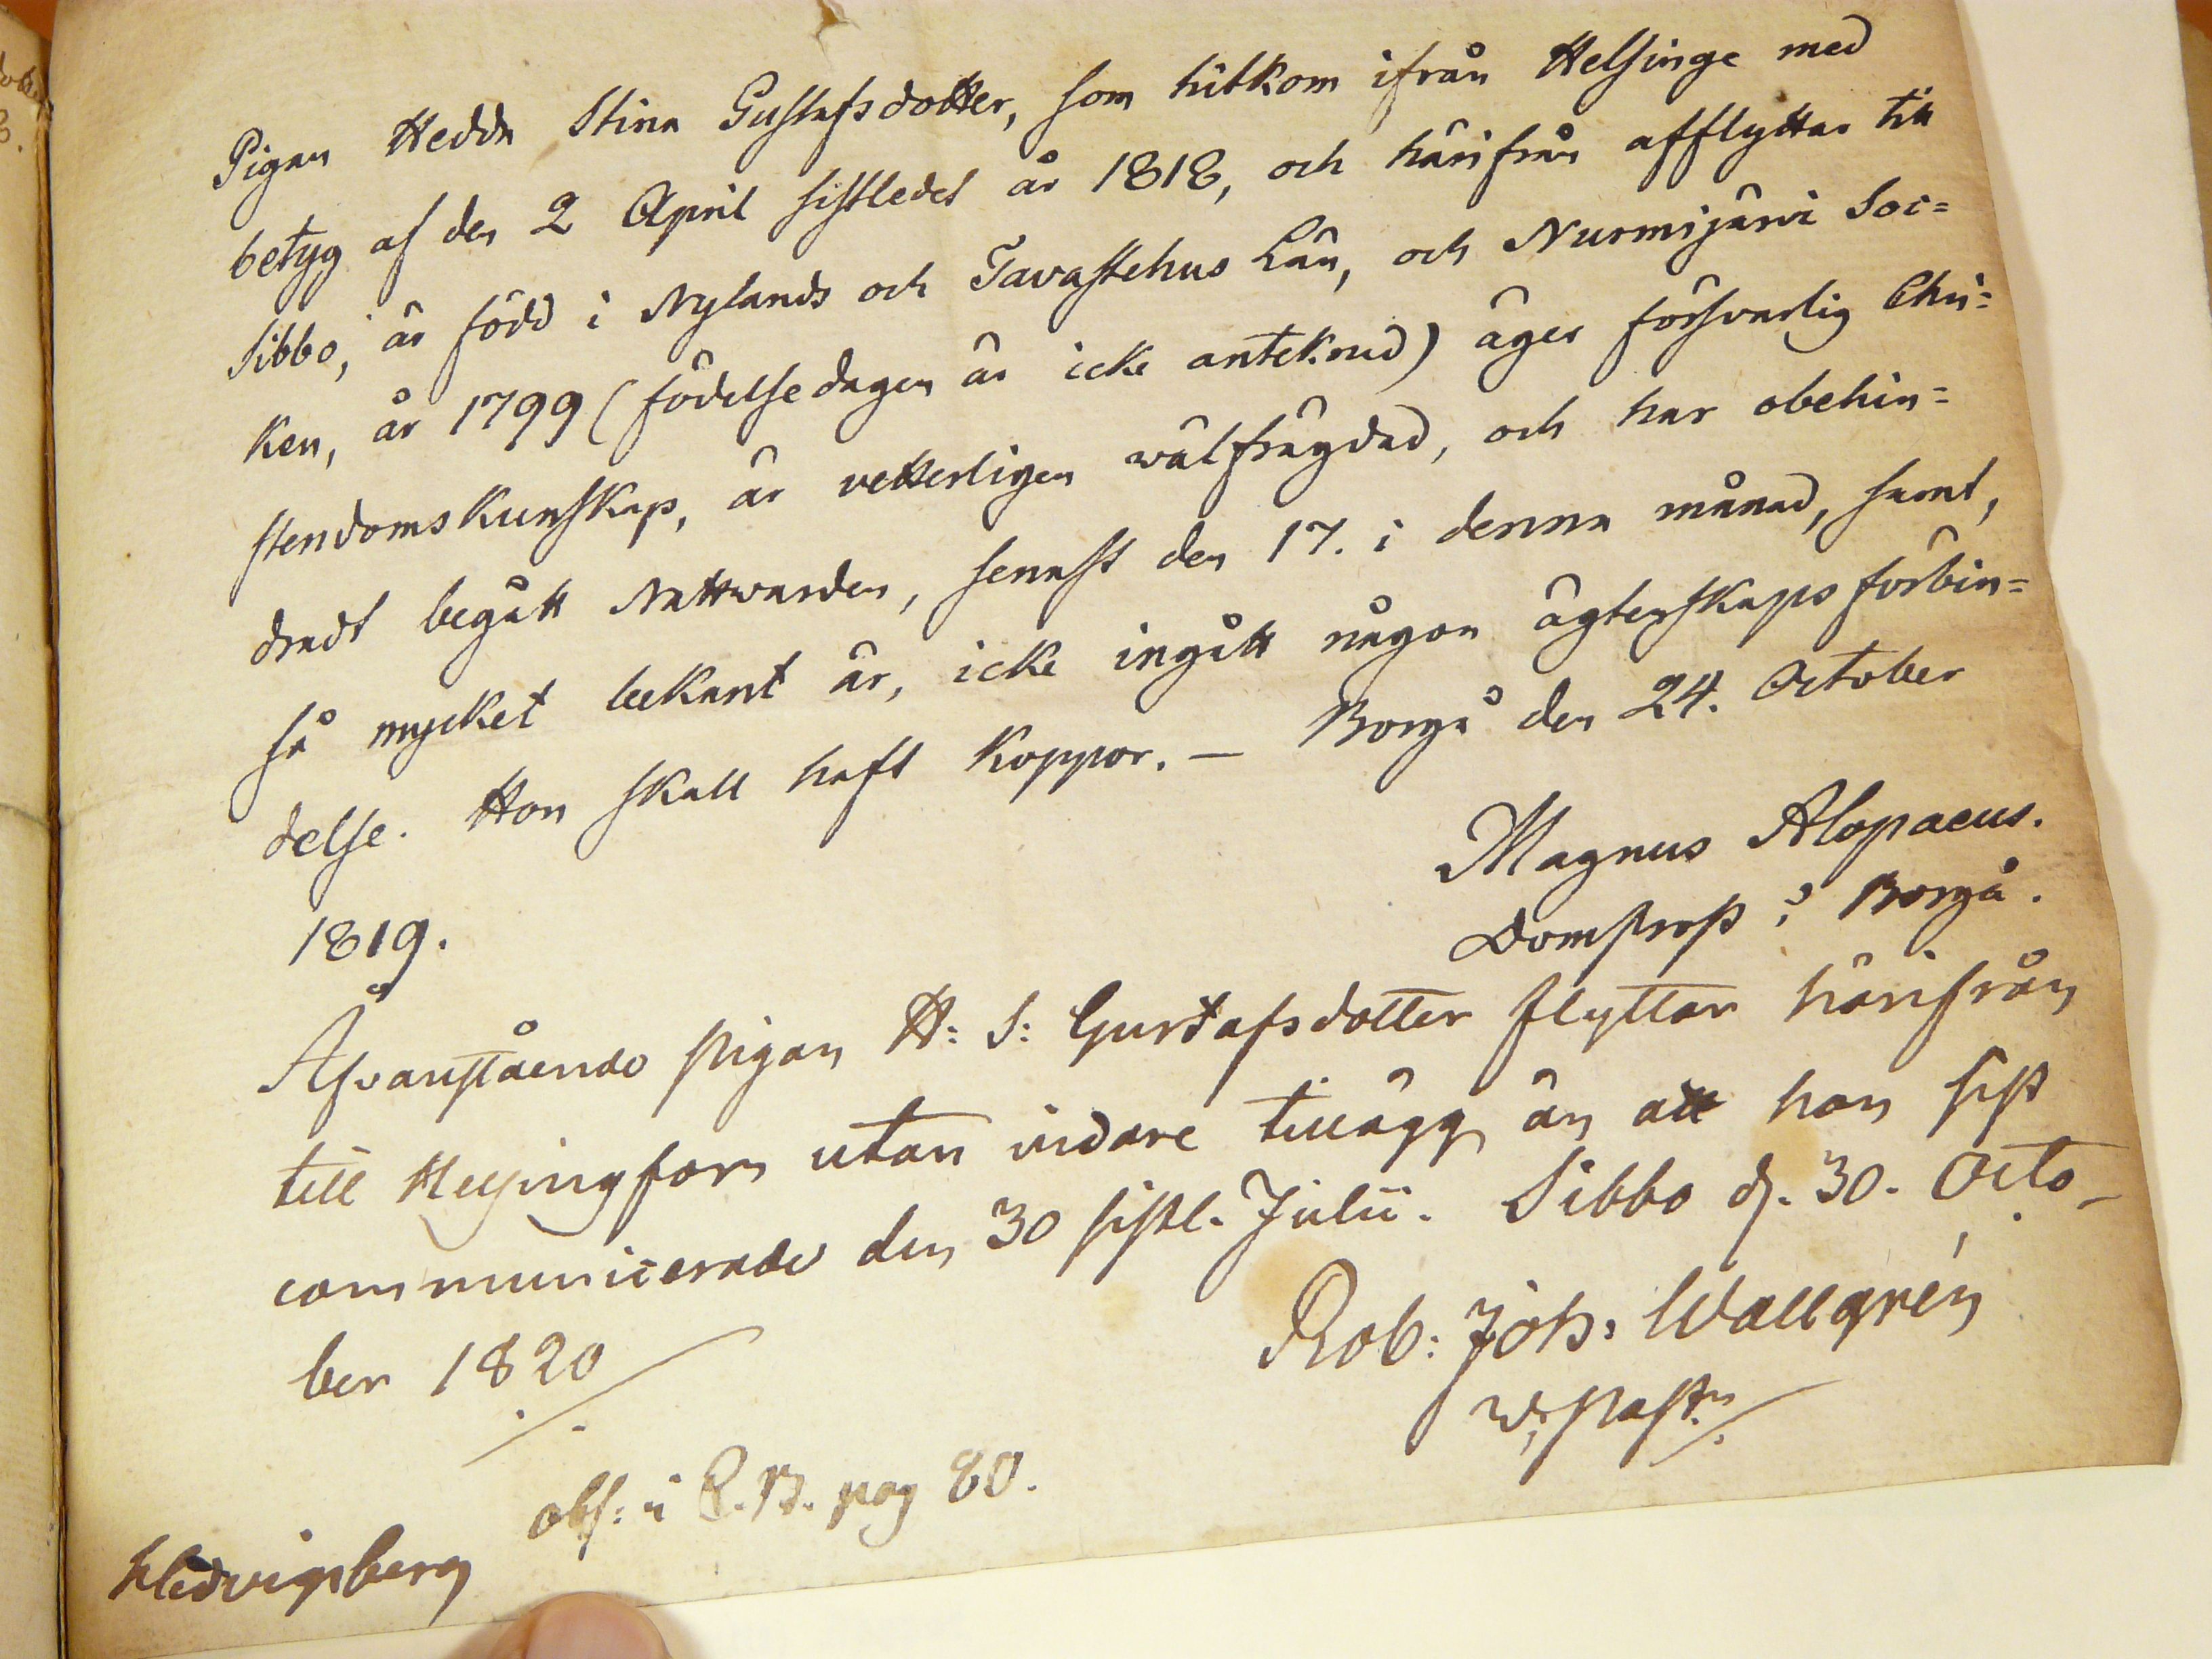 Pigan Hedda Stina Gustafsdotter, som hitkom ifrån Helsinge med
betyg af den 2 April sistledet år 1818, och härifrån afflyttar till
Sibbo, är född i Nylands och Tavastehus Län, och Nurmijärvi Soc=
ken, år 1799 (födelsedagen är icke anteknad) äger försvarlig Chri=
stendomskunskap, är vetterligen wälfrägdad, och har obehin=
dradt begått Nattwarden, senast den 17. i denna månad, samt,
så mycket bekant är, icke ingått någon ägtenskapsförbin=
delse. Hon skall haft Koppor. — Borgå den 24. October
1819.
Magnus Alopaeus.
Domprost i Borgå.
Åfvanstående pigan H: S: Gustafsdotter flyttar härifrån
till Helsingfors utan vidare tillägg än att hon sist
communicerade den 30 sistl. Julii. Sibbo d. 30. Octo-
ber 1820
Rob: Joh: Wallgrén
V. Past:
obs: i C.B. pag 80.
Hedvigsberg